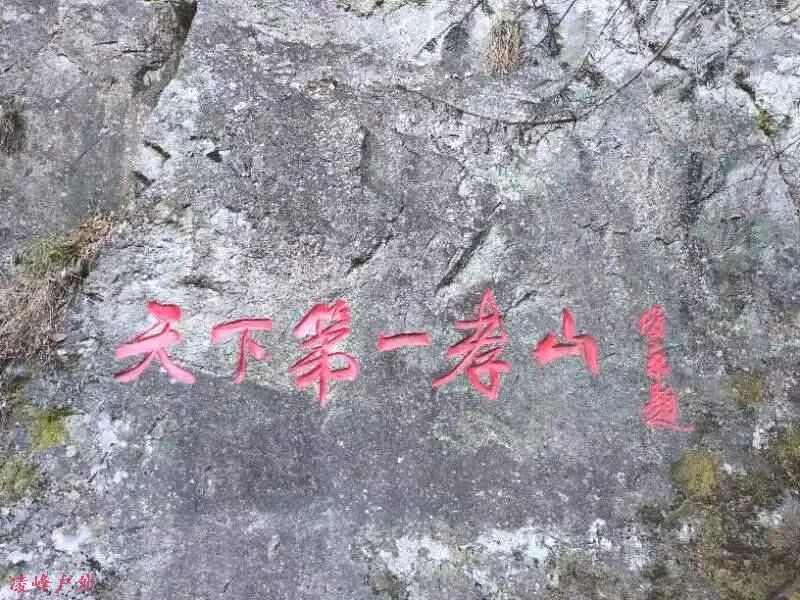 天下第一孝山
题
凌峰户外